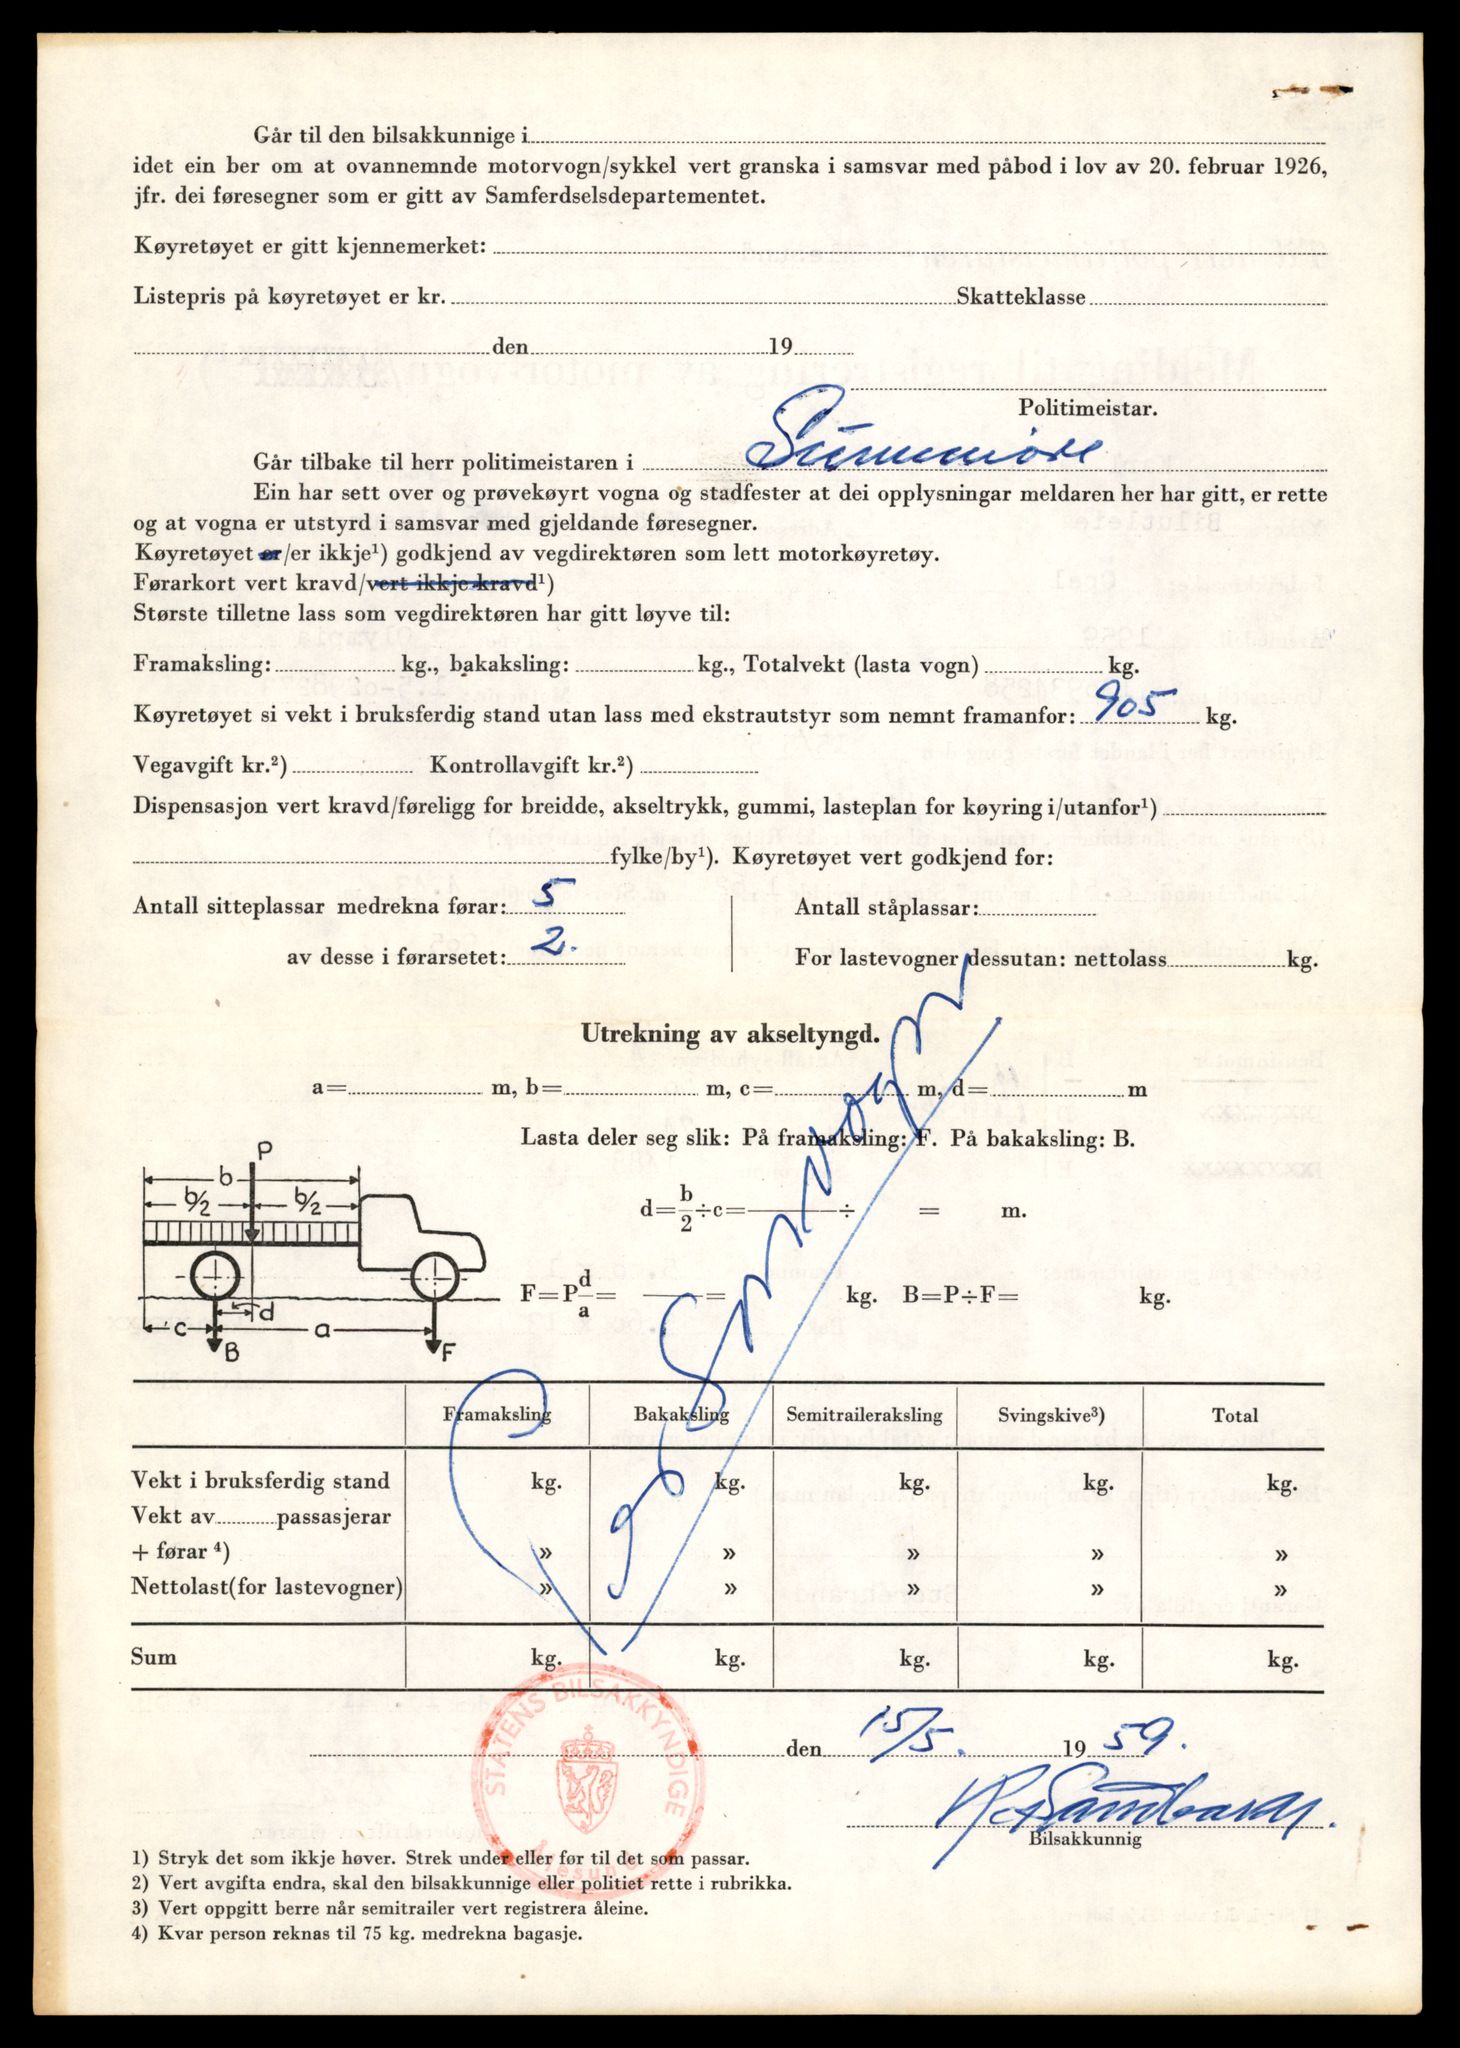 Går til den bilsakkunnige i
idet ein ber om at ovannemnde motorvogn/sykkel vert granska i samsvar med påbod i lov av 20. februar 1926,
jfr. dei føresegner som er gitt av Samferdselsdepartementet.
Køyretøyet er gitt kjennemerket:
Listepris på køyretøyet er kr. Skatteklasse
den 19
Politimeistar.
Går tilbake til herr politimeistaren i Sunnmöre
Ein har sett over og prøvekøyrt vogna og stadfester at dei opplysningar meldaren her har gitt, er rette
og at vogna er utstyrd i samsvar med gjeldande føresegner.
Køyretøyet er/er ikkje¹) godkjend av vegdirektøren som lett motorkøyretøy.
Førarkort vert kravd/vert ikkje kravd¹)
Største tilletne lass som vegdirektøren har gitt løyve til:
Framaksling: kg., bakaksling: kg., Totalvekt (lasta vogn) kg.
Køyretøyet si vekt i bruksferdig stand utan lass med ekstrautstyr som nemnt framanfor: 905 kg.
Vegavgift kr.²) Kontrollavgift kr.²)
Dispensasjon vert kravd/føreligg for breidde, akseltrykk, gummi, lasteplan for køyring i/utanfor¹)
fylke/by¹). Køyretøyet vert godkjend for:
Antall sitteplassar medrekna førar: 5 Antall ståplassar:
av desse i førarsetet: 2. For lastevogner dessutan: nettolass kg.
Utrekning av akseltyngd.
a= m, b= m, c= m, d= m
Lasta deler seg slik: På framaksling: F. På bakaksling: B.
P
b
b/2 b/2
d=b/2÷c= ÷ = m.
F=P d/a= = kg. B=P÷F= kg.
d
c a
B F
Personvogn
Framaksling Bakaksling Semitraileraksling Svingskive³) Total
Vekt i bruksferdig stand kg. kg. kg. kg. kg.
Vekt av passasjerar
+ førar ⁴) » » » » »
Nettolast(for lastevogner) » » » » »
Sum kg. kg. kg. kg. kg.
STATENS BILSAKKYNDIGE
Ålesund
den 15/5. 1959.
Bilsakkunnig
1) Stryk det som ikkje høver. Strek under eller før til det som passar.
2) Vert avgifta endra, skal den bilsakkunnige eller politiet rette i rubrikka.
3) Vert oppgitt berre når semitrailer vert registrera åleine.
4) Kvar person reknas til 75 kg. medrekna bagasje.